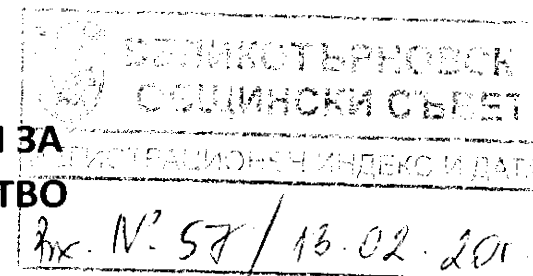 ВЕЛИКОТЪРНОВСКИ
ОБЩИНСКИ СЪВЕТ
И ЗА
РЕГИСТРАЦИОНЕН ИНДЕКС И ДАТА
ТВО
Вх. № 57 / 13.02.201